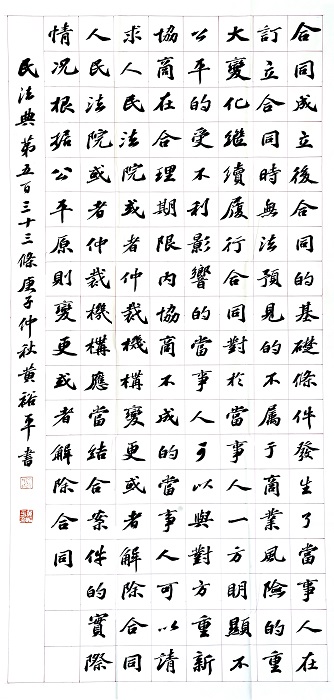 合同成立後合同的基礎條件發生了當事人在
訂立合同時無法預見的不属于商業風險的重
大變化繼續履行合同對於當事人一方明顯不
公平的受不利影響的當事人可以與對方重新
協商在合理期限内協商不成的當事人可以請
求人民法院或者仲裁機構變更或者解除合同
人民法院或者仲裁機構應當結合案件的實際
情况根据公平原則變更或者解除合同
民法典第五百三十三條庚子仲秋黄裕平書